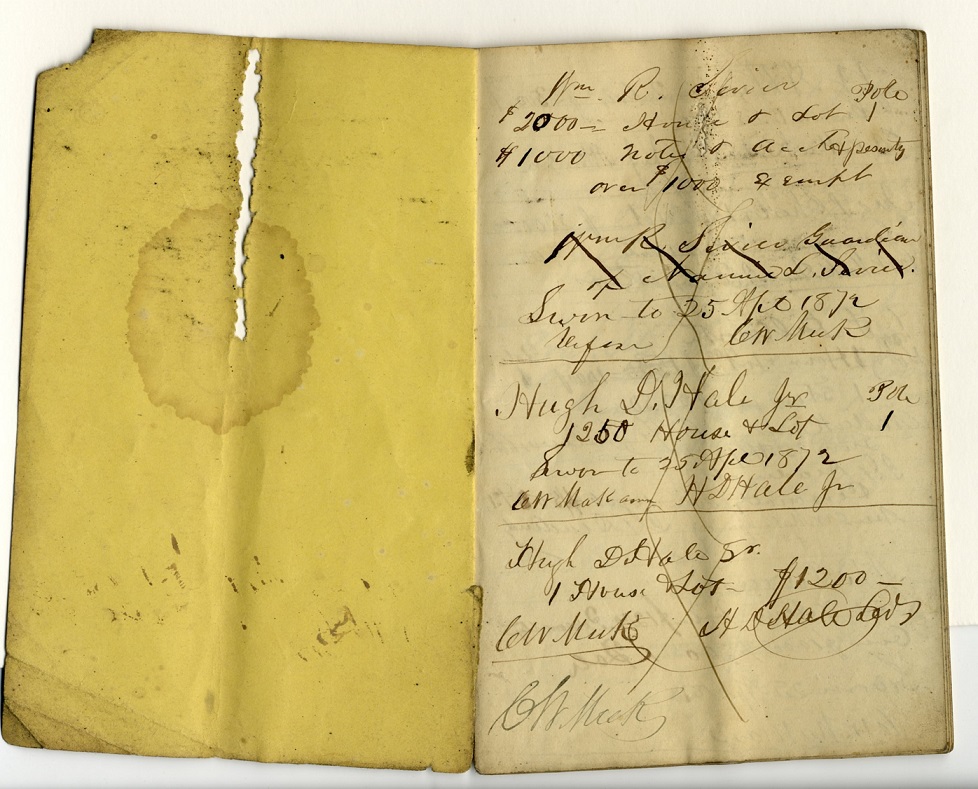 Wm. R. Sevier Pole
$2000 – House & Lot 1
$1000 notes & acc
over $1000 Exempt
Wm R. Sevier Guardian
of Nannie L. Sevier.
Sworn to 25 Apl 1872
CW Meek
Hugh D. Hale Jr Pole
1250 House & Lot 1
Sworn to 25 Apl 1872
CW Meek H D Hale Jr
Hugh D. Hale Sr.
1 House & Lot – $1200 –
CW Meek H D Hale
CW Meek